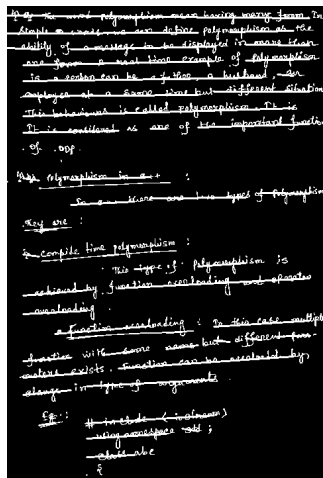 The word polymorphism mean having many form. In
simple words, we can define polymorphism as the
ability of a message to be displayed in more than
one form. A real time example of polymorphism
is a person can be a father, a husband, an
employee at a same time but different situation
This behaviour is called polymorphism. It is
It is considered as one of the important function
of OOP.
Polymorphism in c++ :
In c++ there are two types of polymorphism
they are :
Compile time polymorphism :
This type of polymorphism is
achieved by function overloading and operator
overloading.
Function overloading : In this case multiple
function with same name but different para-
meters exists. Function can be overloaded by
change in type of arguments.
Eg. :
# include < iostream>
using namespace std ;
class abc
{